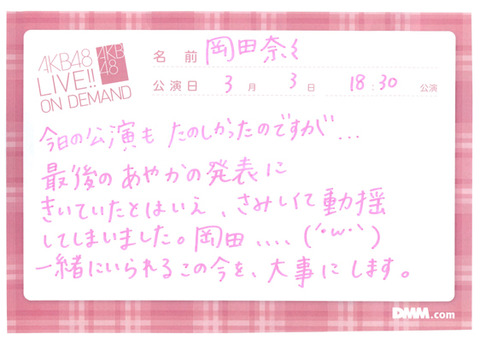 AKB48
LIVE!!
ON DEMAND
AKB
48
名前 岡田奈々
公演日 3月3日 18:30 公演
今日の公演も たのしかったのですが...
最後の あやかの発表に
きいていたとはいえ、さみしくて動揺
してしまいました。岡田、、、、(´・ω・`)
一緒にいられるこの今を、大事にします。
DMM.com